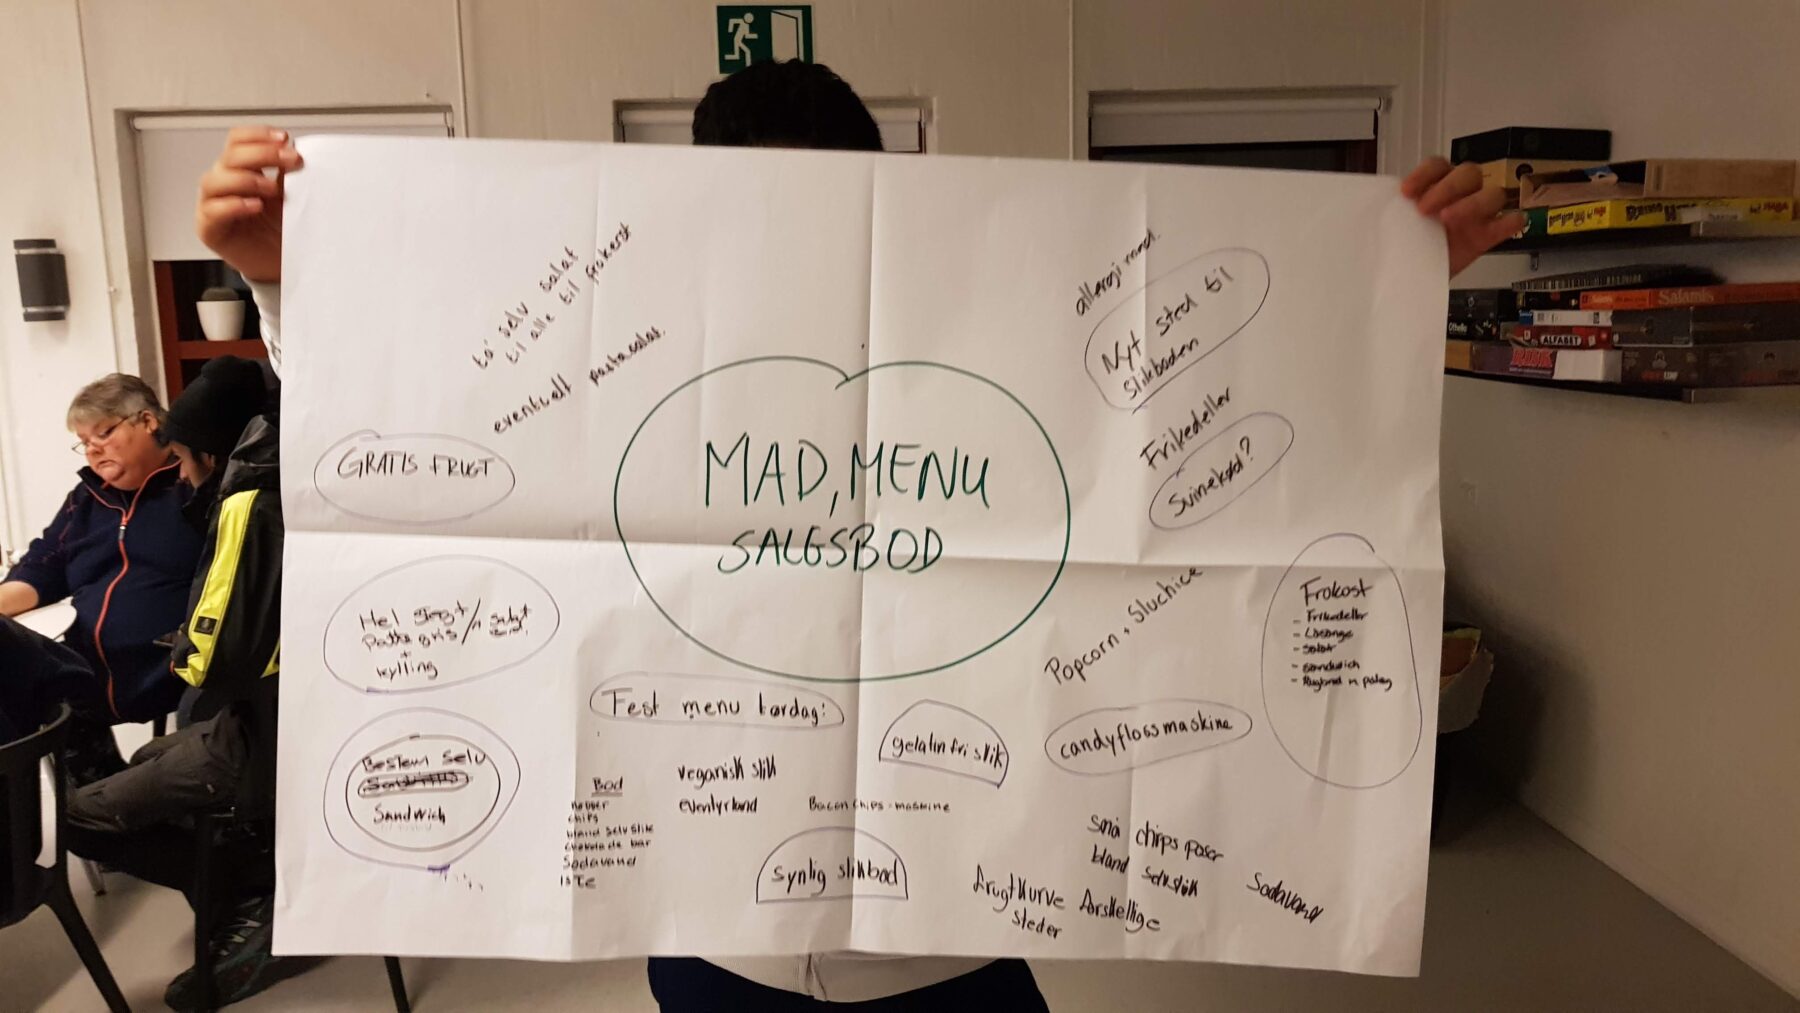 ta' selv salat
til alle til frokost
eventuelt pastasalat.
GRATIS FRUGT
Hel stegt
Patte gris/
+
kylling
Bestem selv
Sandwich
MAD, MENU
SALGSBOD
allergi mad.
Nyt sted til
Slikboden
Frikedeller
Svinekød?
Popcorn + Sluchice
Frokost
- Frikedeller
- Lasange
- Salat
- Sandwich
- Rugbrød m pålæg
Fest menu lørdag:
gelatin fri slik
candyflossmaskine
Bod
chips
bland selv slik
chokolade bar
Sodavand
Is Te
veganisk slik
eventyrland
Bacon chips-maskine
synlig slikbod
små chips poser
bland selv slik
Sodavand
frugtkurve forskellige
steder
Salamis
Othello
ALFABET
RISK